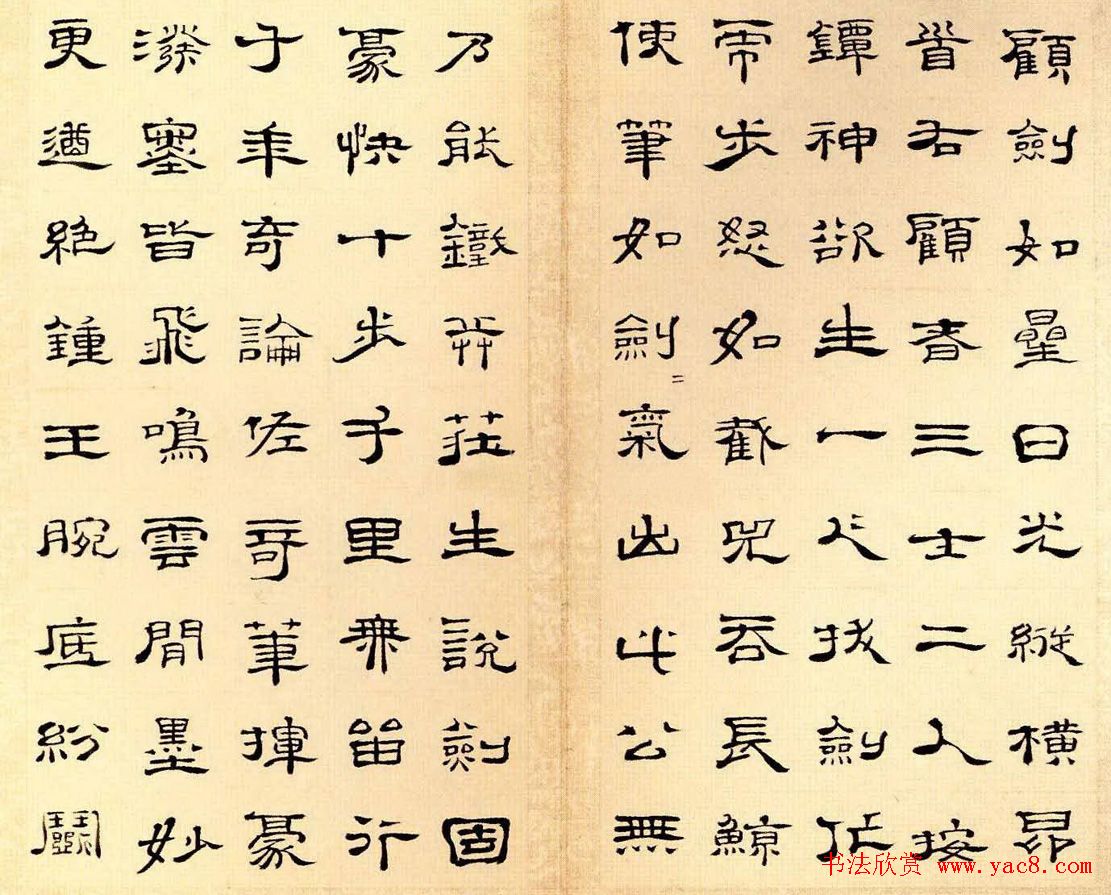 顧劍如曐日光縱橫昂
首右顧者三士二人按
鐔神欲生一人拔劍茫
步怒如截兕吞長鯨
使筆如劍〻氣出此公無
乃能鐵并莊生說劍固
豪快十步千里無留行
千年奇論佐奇筆揮豪
塞皆飛鳴雲間墨妙
更遒絕鍾王腕底紛鬭
书法欣赏 www.yac8.com